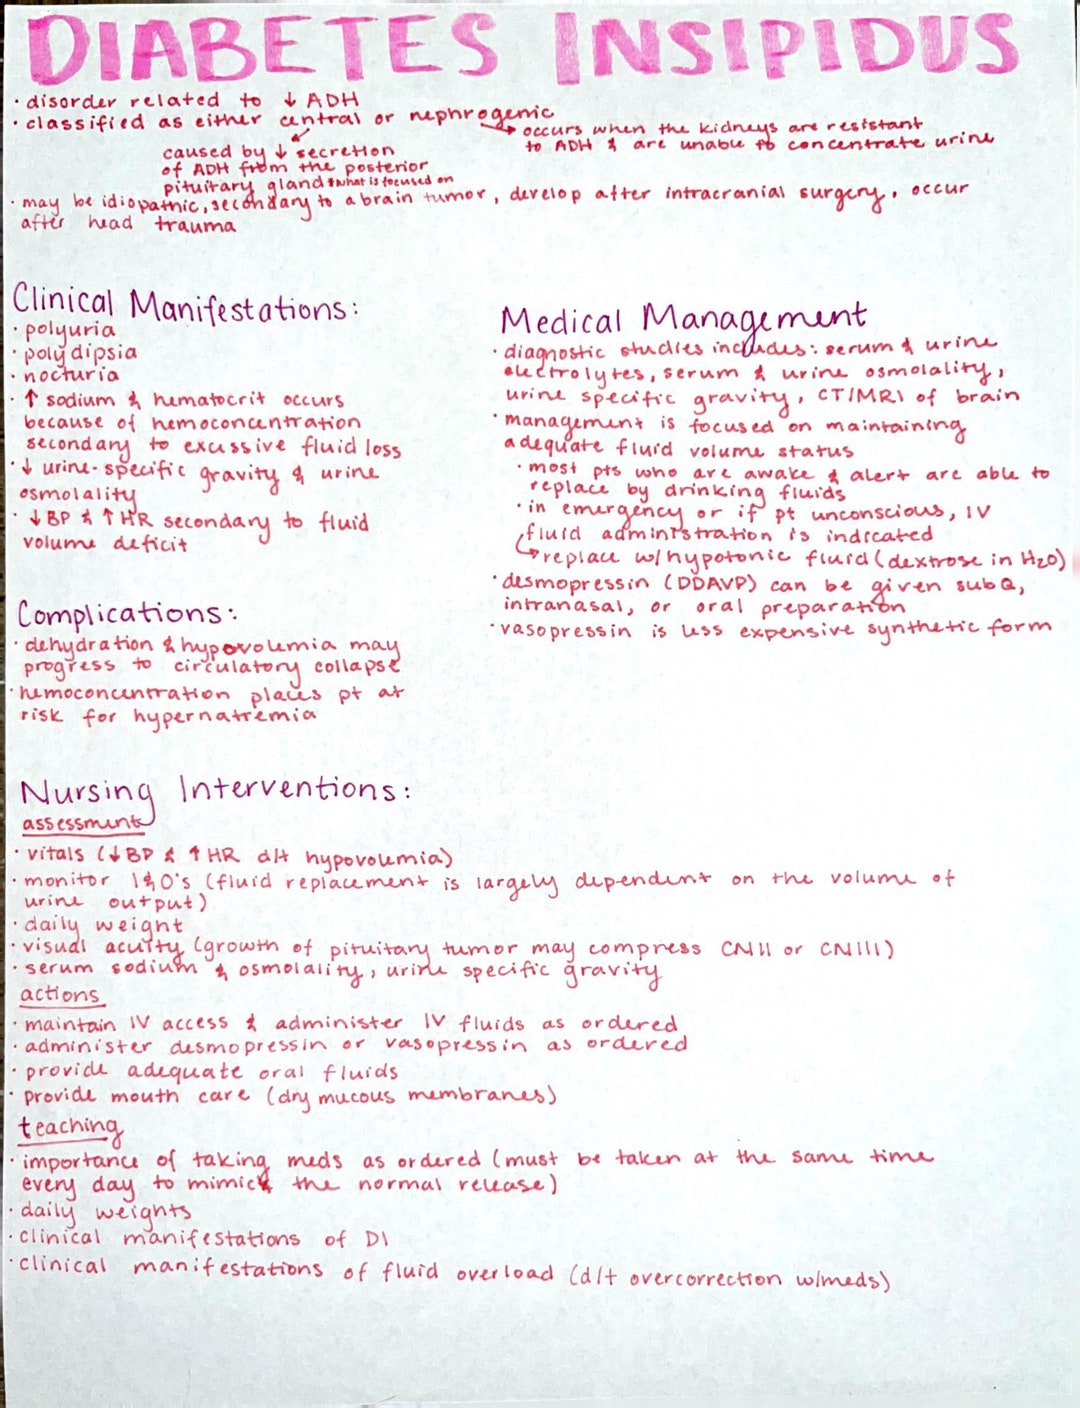 DIABETES INSIPIDUS
· disorder related to ↓ ADH
· classified as either central or nephrogenic
→ occurs when the kidneys are resistant
to ADH & are unable to concentrate urine
caused by ↓ secretion
of ADH from the posterior
pituitary gland *what is focused on
· may be idiopathic, secondary to a brain tumor, develop after intracranial surgery, occur
after head trauma
Clinical Manifestations:
· polyuria
· polydipsia
· nocturia
· ↑ sodium & hematocrit occurs
because of hemoconcentration
secondary to excessive fluid loss
· ↓ urine-specific gravity & urine
osmolality
· ↓BP & ↑HR secondary to fluid
volume deficit
Complications:
· dehydration & hypovolemia may
progress to circulatory collapse
· hemoconcentration places pt at
risk for hypernatremia
Medical Management
· diagnostic studies includes: serum & urine
electrolytes, serum & urine osmolality,
urine specific gravity, CT/MRI of brain
· management is focused on maintaining
adequate fluid volume status
· most pts who are awake & alert are able to
replace by drinking fluids
· in emergency or if pt unconscious, IV
fluid administration is indicated
→ replace w/hypotonic fluid (dextrose in H2O)
· desmopressin (DDAVP) can be given subQ,
intranasal, or oral preparation
· vasopressin is less expensive synthetic form
Nursing Interventions:
assessment
· vitals (↓BP & ↑HR d/t hypovolemia)
· monitor I&O's (fluid replacement is largely dependent on the volume of
urine output)
· daily weight
· visual acuity (growth of pituitary tumor may compress CNII or CNIII)
· serum sodium & osmolality, urine specific gravity
actions
· maintain IV access & administer IV fluids as ordered
· administer desmopressin or vasopressin as ordered
· provide adequate oral fluids
· provide mouth care (dry mucous membranes)
teaching
· importance of taking meds as ordered (must be taken at the same time
every day to mimick the normal release)
· daily weights
· clinical manifestations of DI
· clinical manifestations of fluid overload (d/t overcorrection w/meds)